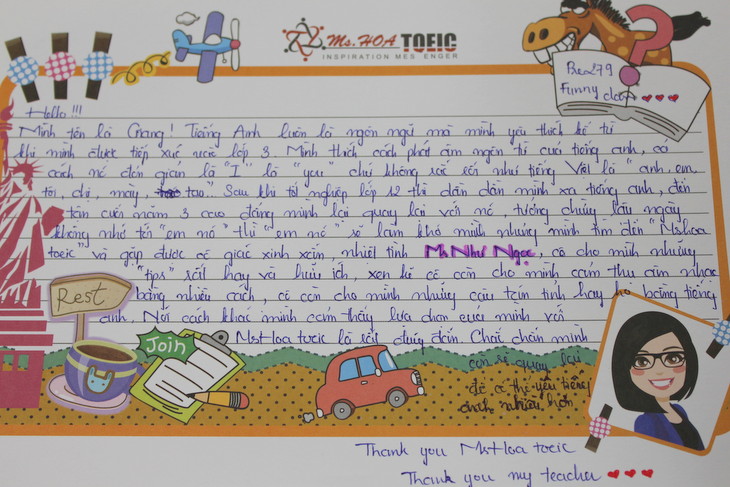 Ms.HOA TOEIC
INSPIRATION MESSENGER
Pre 99
Funny class
Hello !!!
Mình tên là Giang! Tiếng Anh luôn là ngôn ngữ mà mình yêu thích kể từ
khi mình được tiếp xúc với lớp 3. Mình thích cách phát âm ngôn từ của tiếng anh, cả
cách nó đơn giản là "I" là "you" chứ không rắc rối như tiếng Việt là "anh, em
tôi, chị, mày, tao"... Sau khi tốt nghiệp lớp 12 thì dần dần mình xa tiếng anh, đến
tận cuối năm 3 cao đẳng mình lại quay lại với nó, tưởng chừng lâu ngày
không nhớ tới "em nó" thì "em nó" sẽ làm khó mình nhưng mình tìm đến "Ms hoa
toeic" và gặp được cô giáo xinh xắn, nhiệt tình Ms Như Ngọc, cô cho mình những
"tips" rất hay và hữu ích, xen kẽ cô còn cho mình cảm thụ âm nhạc
bằng nhiều cách, cô còn cho mình những câu tán tỉnh hay ho bằng tiếng
anh. Nói cách khác mình cảm thấy lựa chọn của mình với
MsHoa toeic là rất đúng đắn. Chắc chắn mình
còn sẽ quay lại
để có thể yêu tiếng
anh nhiều hơn
Rest
Join
Thank you MsHoa toeic
Thank you my teacher